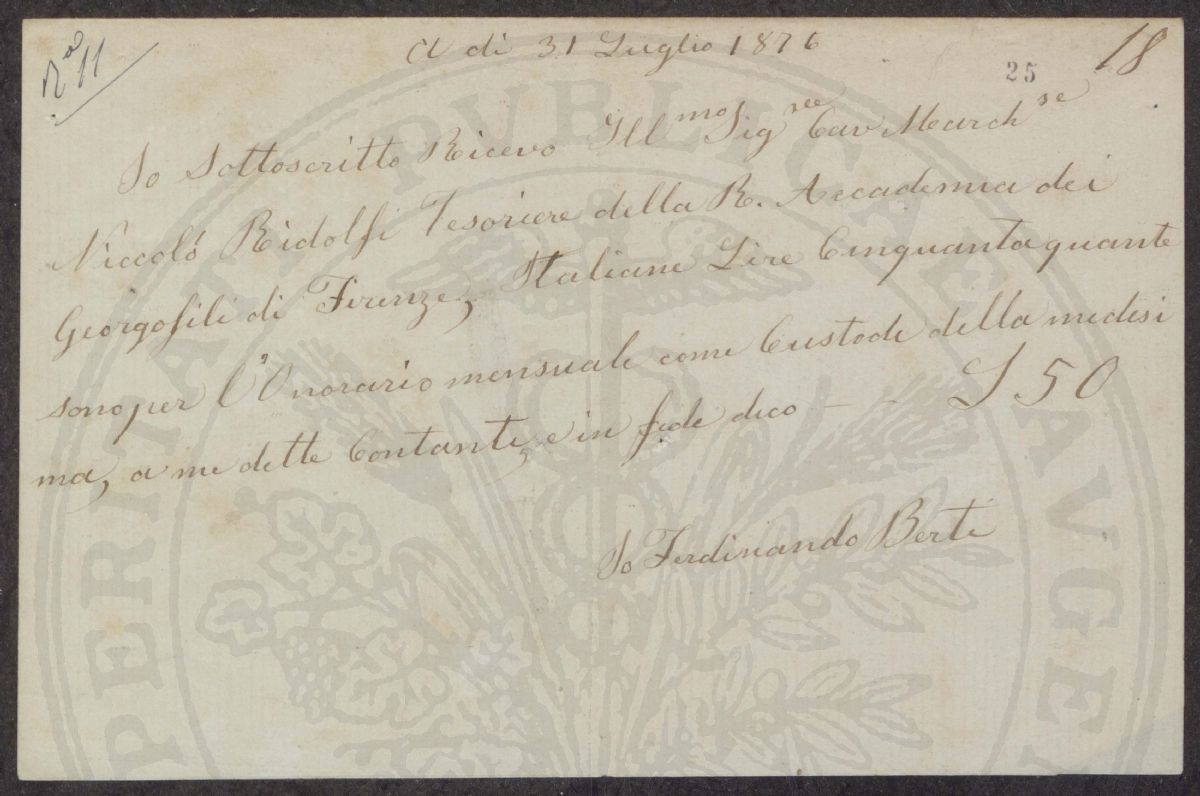 N.º 11
A dì 31 Luglio 1876
18
25
Io Sottoscritto Ricevo Ill.mo Sig.re Cav March.se
Niccoló Ridolfi Tesoriere della R. Accademia dei
Georgofili di Firenze, Italiane Lire Cinquanta quante
sono per l'Onorario mensuale come Custode della medesi
ma, a me dette Contanti, e in fede dico — - L 50
Io Ferdinando Berti
PROSPERITATI PVBLICAE AVGENDAE